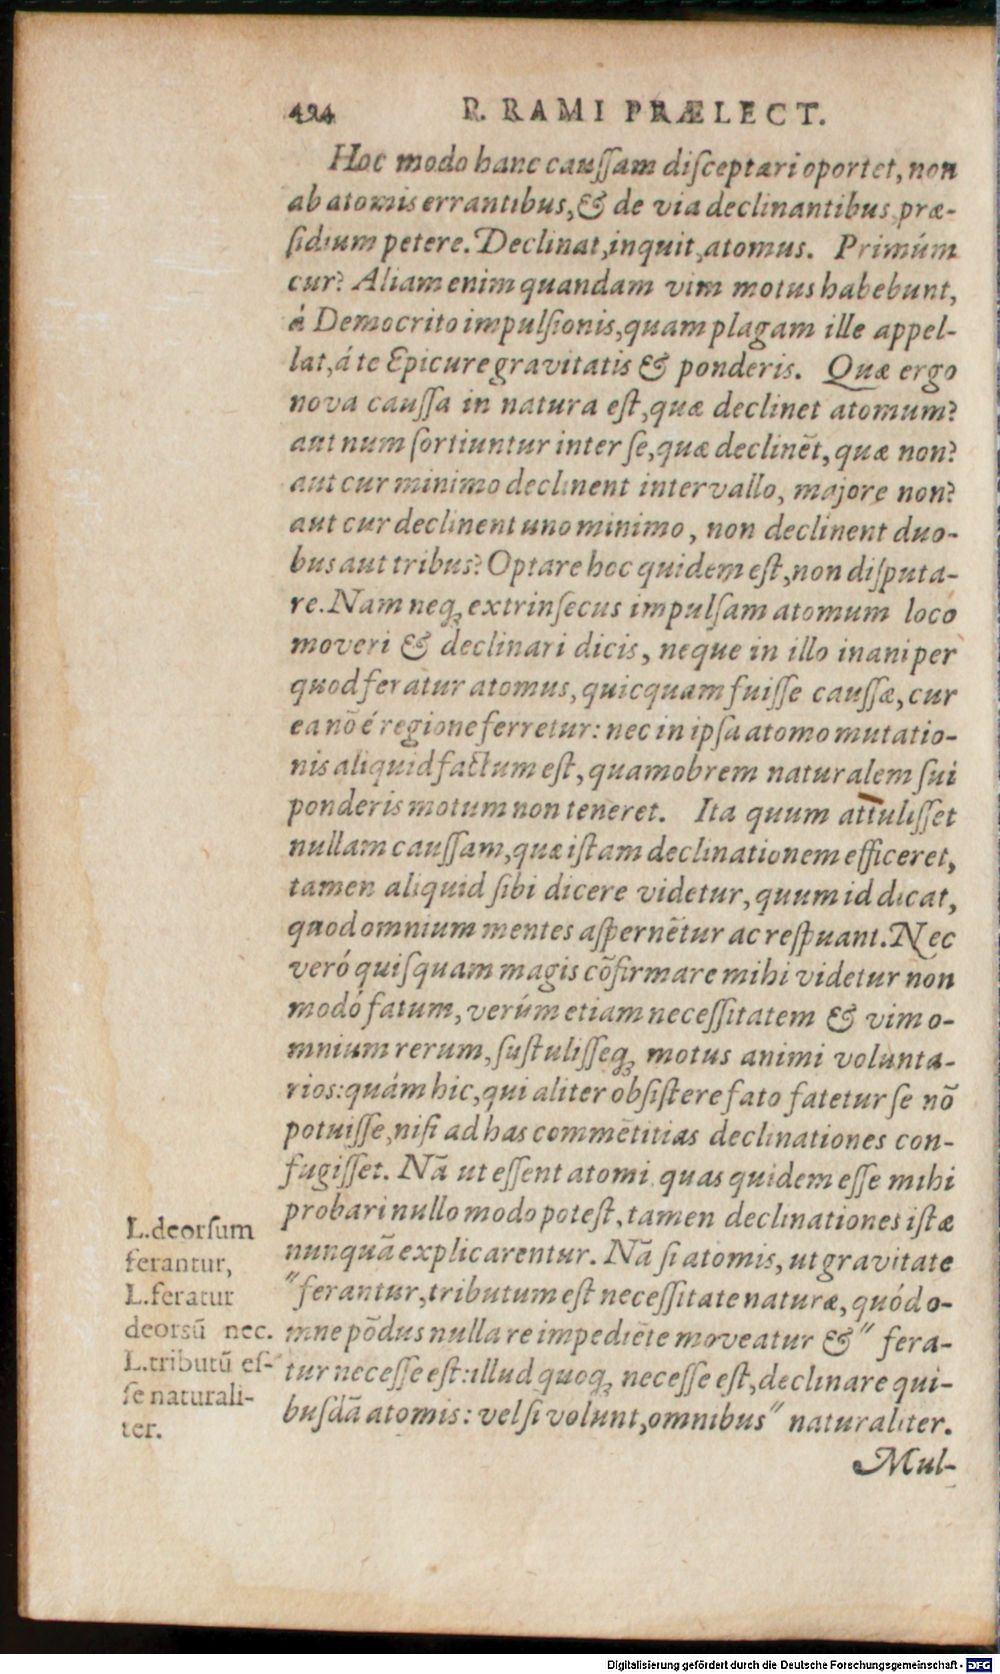 424 P. RAMI PRÆLECT.
Hoc modo hanc caussam disceptari oportet, non
ab atomis errantibus, & de via declinantibus præ-
sidium petere. Declinat, inquit, atomus. Primúm
cur? Aliam enim quandam vim motus habebunt,
á Democrito impulsionis, quam plagam ille appel-
lat, á te Epicure gravitatis & ponderis. Quæ ergo
nova caussa in natura est, quæ declinet atomum?
aut num sortiuntur inter se, quæ declinēt, quæ non?
aut cur minimo declinent intervallo, majore non?
aut cur declinent uno minimo, non declinent duo-
bus aut tribus? Optare hoc quidem est, non disputa-
re. Nam neq; extrinsecus impulsam atomum loco
moveri & declinari dicis, neque in illo inani per
quod feratur atomus, quicquam fuisse caussæ, cur
ea nō é regione ferretur: nec in ipsa atomo mutatio-
nis aliquid factum est, quamobrem naturalem sui
ponderis motum non teneret. Ita quum attulisset
nullam caussam, quæ istam declinationem efficeret,
tamen aliquid sibi dicere videtur, quum id dicat,
quod omnium mentes aspernētur ac respuant. Nec
veró quisquam magis cōfirmare mihi videtur non
modó fatum, verúm etiam necessitatem & vim o-
mnium rerum, sustulisseq; motus animi volunta-
rios: quám hic, qui aliter obsistere fato fatetur se nō
potuisse, nisi ad has commētitias declinationes con-
fugisset. Nā ut essent atomi, quas quidem esse mihi
probari nullo modo potest, tamen declinationes istæ
nunquā explicarentur. Nā si atomis, ut gravitate
"ferantur, tributum est necessitate naturæ, quód o-
mne pōdus nulla re impediēte moveatur &" fera-
tur necesse est: illud quoq; necesse est, declinare qui-
busdā atomis: vel si volunt, omnibus" naturaliter.
Mul-
L. deorsum
ferantur,
L. feratur
deorsū nec.
L. tributū es-
se naturali-
ter.
Digitalisierung gefördert durch die Deutsche Forschungsgemeinschaft - DFG